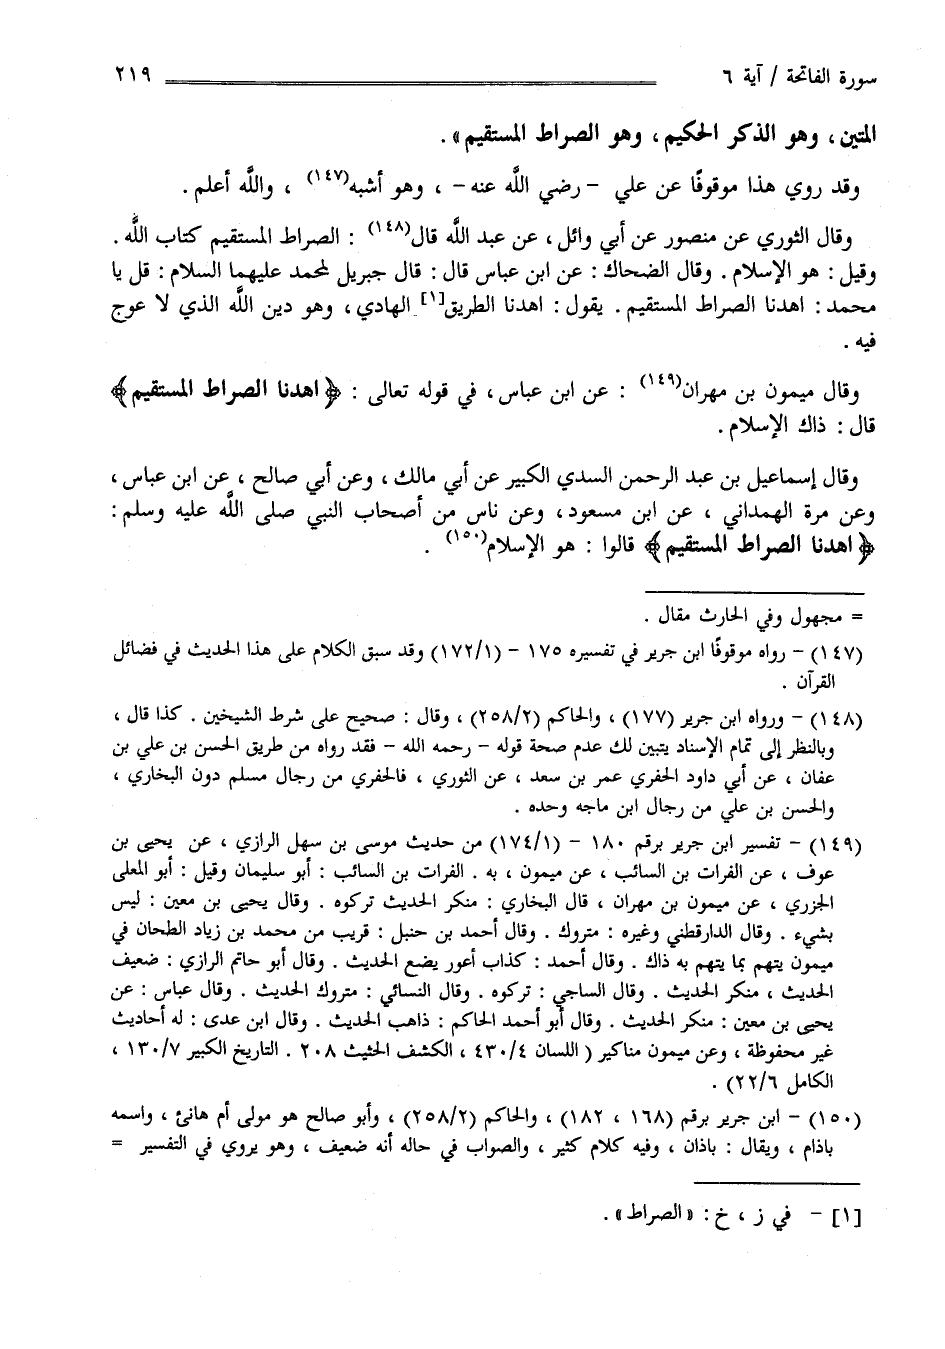 سورة الفاتحة / آية ٦ ٢١٩
المتين ، وهو الذكر الحكيم ، وهو الصراط المستقيم » .
وقد روي هذا موقوفًا عن علي – رضي اللَّه عنه – ، وهو أشبه(١٤٧) ، واللَّه أعلم .
وقال الثوري عن منصور عن أبي وائل ، عن عبد اللَّه قال(١٤٨) : الصراط المستقيم كتاب اللَّه .
وقيل : هو الإسلام . وقال الضحاك : عن ابن عباس قال : قال جبريل لمحمد عليهما السلام : قل يا
محمد : اهدنا الصراط المستقيم . يقول : اهدنا الطريق[١] الهادي ، وهو دين اللَّه الذي لا عوج
فيه .
وقال ميمون بن مهران(١٤٩) : عن ابن عباس ، في قوله تعالى : ﴿ اهدنا الصراط المستقيم ﴾
قال : ذاك الإسلام .
وقال إسماعيل بن عبد الرحمن السدي الكبير عن أبي مالك ، وعن أبي صالح ، عن ابن عباس ،
وعن مرة الهمداني ، عن ابن مسعود ، وعن ناس من أصحاب النبي صلى اللَّه عليه وسلم :
﴿ اهدنا الصراط المستقيم ﴾ قالوا : هو الإسلام(١٥٠) .
= مجهول وفي الحارث مقال .
(١٤٧) – رواه موقوفًا ابن جرير في تفسيره ١٧٥ – (١٧٢/١) وقد سبق الكلام على هذا الحديث في فضائل
القرآن .
(١٤٨) – ورواه ابن جرير (١٧٧) ، والحاكم (٢٥٨/٢) ، وقال : صحيح على شرط الشيخين . كذا قال ،
وبالنظر إلى تمام الإسناد يتبين لك عدم صحة قوله – رحمه الله – فقد رواه من طريق الحسن بن علي بن
عفان ، عن أبي داود الحفري عمر بن سعد ، عن الثوري ، فالحفري من رجال مسلم دون البخاري ،
والحسن بن علي من رجال ابن ماجه وحده .
(١٤٩) – تفسير ابن جرير برقم ١٨٠ – (١٧٤/١) من حديث موسى بن سهل الرازي ، عن يحيى بن
عوف ، عن الفرات بن السائب ، عن ميمون ، به . الفرات بن السائب : أبو سليمان وقيل : أبو المعلى
الجزري ، عن ميمون بن مهران ، قال البخاري : منكر الحديث تركوه . وقال يحيى بن معين : ليس
بشيء . وقال الدارقطني وغيره : متروك . وقال أحمد بن حنبل : قريب من محمد بن زياد الطحان في
ميمون يتهم بما يتهم به ذاك . وقال أحمد : كذاب أعور يضع الحديث . وقال أبو حاتم الرازي : ضعيف
الحديث ، منكر الحديث . وقال الساجي : تركوه . وقال النسائي : متروك الحديث . وقال عباس : عن
يحيى بن معين : منكر الحديث . وقال أبو أحمد الحاكم : ذاهب الحديث . وقال ابن عدى : له أحاديث
غير محفوظة ، وعن ميمون مناكير ( اللسان ٤٣٠/٤ ، الكشف الحثيث ٢٠٨ . التاريخ الكبير ١٣٠/٧ ،
الكامل ٢٢/٦) .
(١٥٠) – ابن جرير برقم (١٦٨ ، ١٨٢) ، والحاكم (٢٥٨/٢) ، وأبو صالح هو مولى أم هانئ ، واسمه
باذام ، ويقال : باذان ، وفيه كلام كثير ، والصواب في حاله أنه ضعيف ، وهو يروي في التفسير =
[١] – في ز ، خ : « الصراط » .